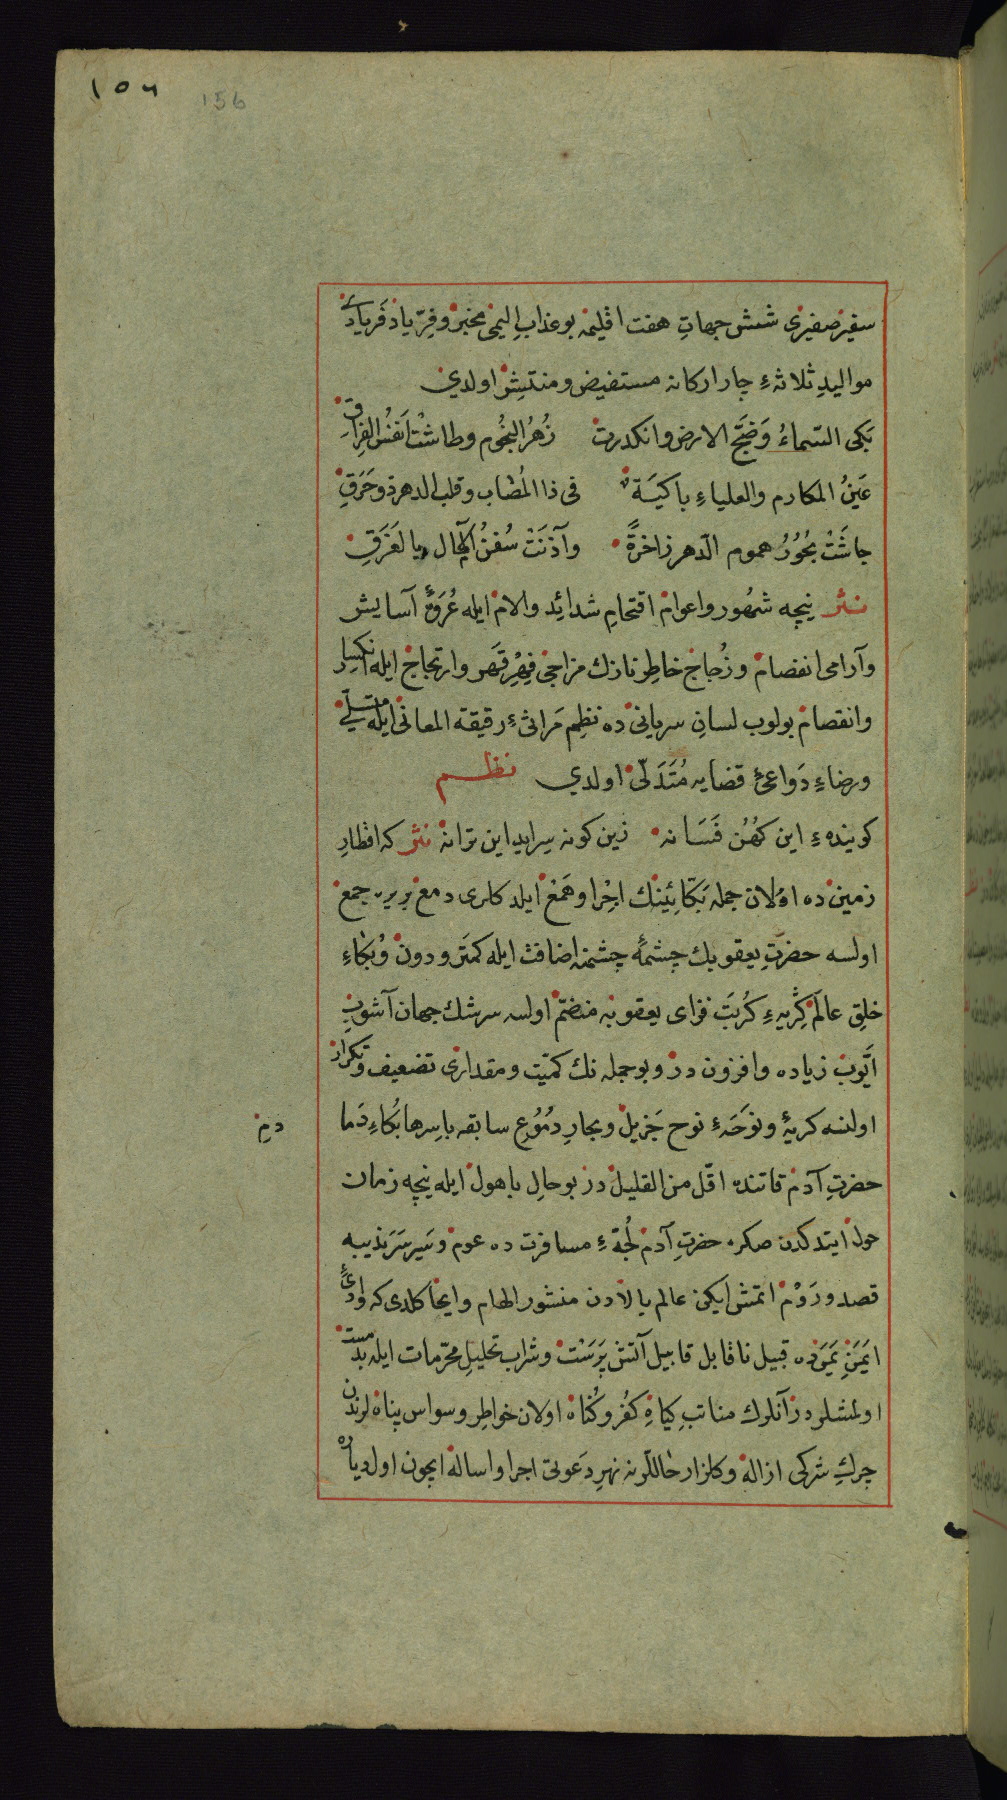 ١٥٦
156
سفیر صفیری شش جهاتِ هفت اقلیمه بو عذابِ الیمی مخبر و فرّیاد فریادی
موالیدِ ثلاثهٔ چار ارکانه مستفیض و منتشر اولدی
بَکی السّماءُ وَضَجَّ الارض وانکدرت زُهرُ النجُوم وطاشتْ اَنفُسُ الفِراقِ
عَینُ المکارم والعلیاءِ باکیَة فی ذا المُصاب وقلب الدهر ذو حَرَقِ
جاشَتْ بحُورُ هموم الدّهر زاخرةً وآذنَتْ سُفنُ الآجال بالغَرَقِ
نثر نیچه شهُور واعوام اقتحامِ شدائد والام ایله عُروَهٔ آسایش
وآرامی انفصام و زُجاجِ خاطرِ نازك مزاجی فِهْرِ قَهر وارتجاج ایله انکسار
وانفصام بولوب لسانِ سریانی ده نظمِ مَراثیٔ رقیقة المعانی ایله متسلّی
ورضاءِ دَواعیٔ قضایه مُتَدَلّی اولدی نظم
کوینده ءِ این کُهُن فَسَانه زین کونه سراید این ترانه نثر که اقطارِ
زمین ده اوُلان جمله بَکّائینك اِجْرا و هَمْع ایلدکلری دمع بربره جمع
اولسه حضرتِ یعقوبك چشمهٔ چشمنه اضافت ایله کمتر و دون وُبکاءِ
خلقِ عالم کِریه ءِ کُربَت فزای یعقوبه منضمّ اولسه سرشك جهان آشوبِ
ایّوب زیاده وافزون در وبو جمله نك کمیّت ومقداری تضعیف وتکرار
اولنسه کریهٔ ونوحَه ءِ نوح جَزیل وبحارِ دُمُوعِ سابقه باسِرها بُکاءِ دَما
دمِ
حضرتِ آدم قاتنده اقلّ من القلیل در بو حالِ باهول ایله نیچه زمان
حول ایتدکدن صکره حضرتِ آدم لُجّة ءِ مسافرت ده عوم وسَیرِ سَرَندیبه
قصد ورَوْم اتمش ایکن عالم بالادن منشور الهام وایحا کلدی که وادیٔ
ایمَنِ یَمَوْده قبیل ناقابل قابیل آتش پَرَسْت وشراب تحلیلِ محرّمات ایله بدمست
اولمشلردر آنلرك منابتِ کیاهِ کفر وکُناه اولان خواطرِ وسواس پناه لرندن
چركِ شرکی ازاله وکلزار حاللرینه نهرِ دَعوتی اجرا واساله ایچون اول دیاره